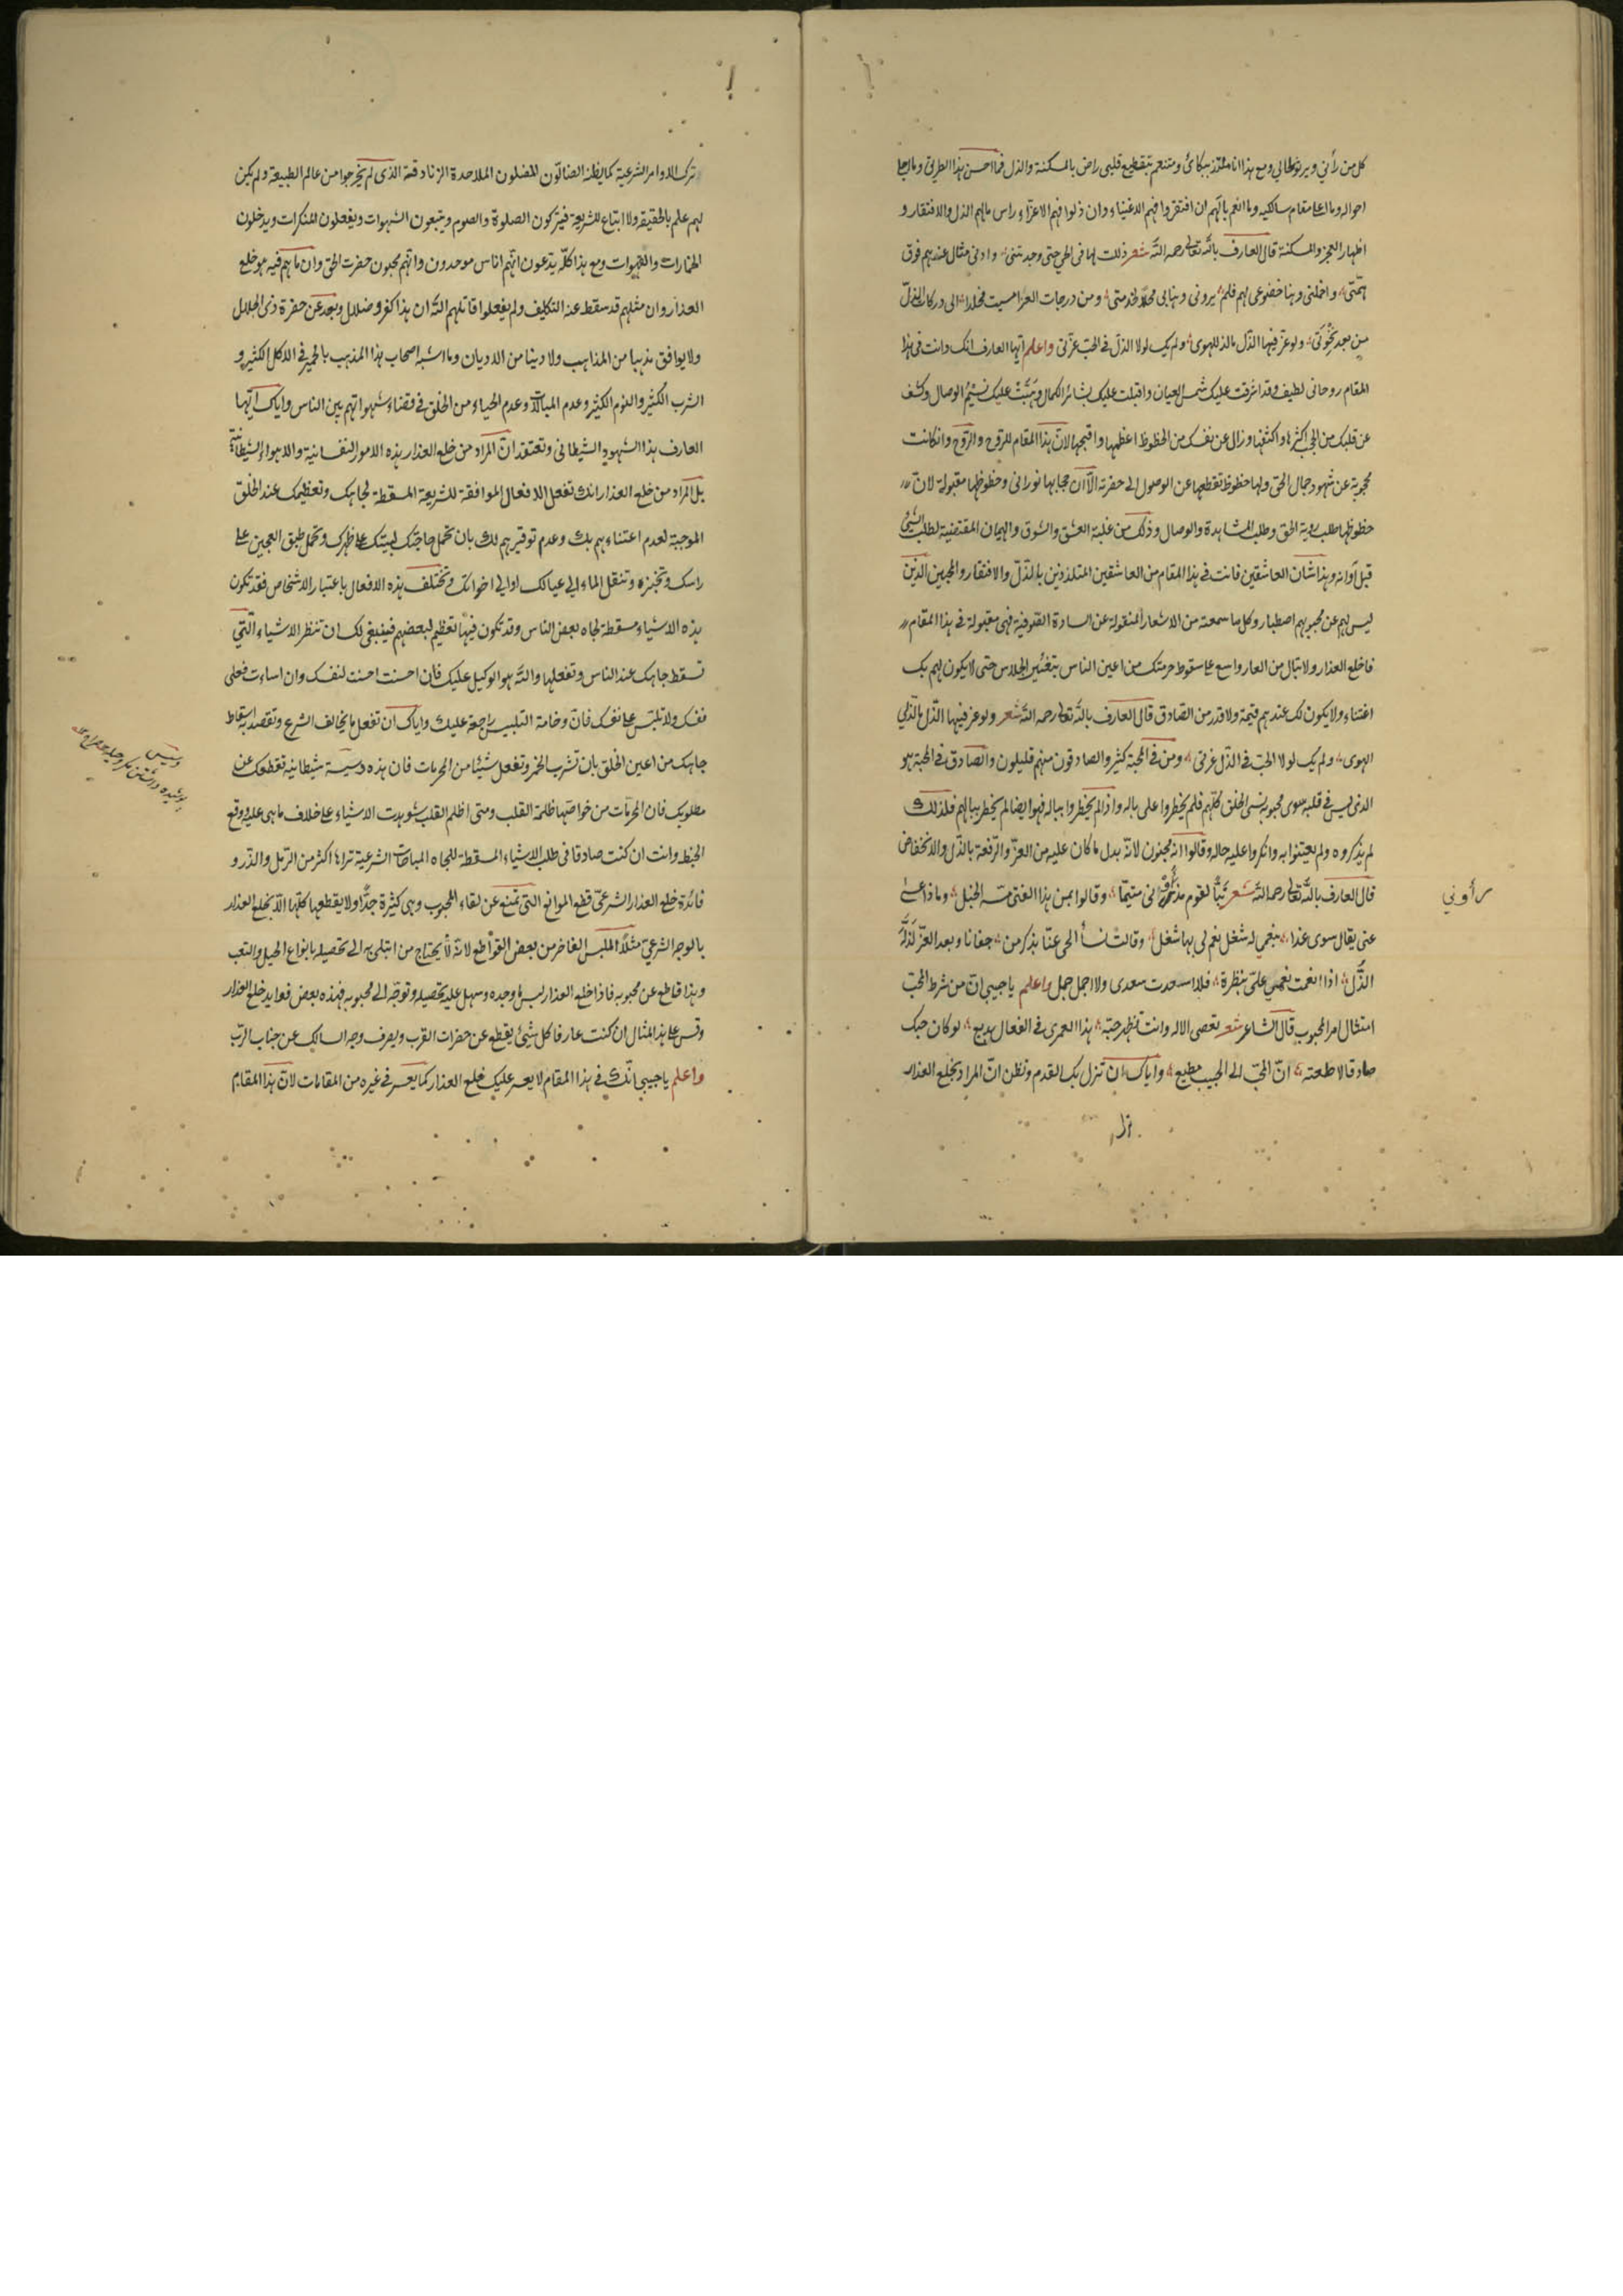 كل من رأني ويرثو لحالي ومع هذا انا متلذذ ببكائ ومتنعم بتقطيع قلبي راض بالمسكنة والذل فما احسن هذا الطريق وما اجلا
احواله وما اعلا مقام سالكيه وما انعم بالهم ان افتقروا فهم الاغنياء وان ذلوا فهم الاعزاء راس مالهم الذل والافتقار و
اظهار العجز والمسكنة قال العارف بالله تعالى رحمه الله شعر ذللت لها في الحي حتى وجدتني ۵ وادنى مثال عندهم فوق
همتي ۵ واخملني وهنا خضوعي لهم فلم ۵ يروني وهنا بي محلا لخدمتي ۵ ومن درجات العز امسيت مخلدا ۵ الى دركات الذل
من بعد نخوتي ۵ ولو عز فيها الذل ما لذ للهوى ۵ ولم يك لولا الذل في الحب عزتي واعلم ايها العارف انك وانت في هذا
المقام روحاني لطيف وقد اشرقت عليك شمس العيان واقبلت عليك بشائر الكمال وهبت عليك نسيم الوصال وكشف
عن قلبك من الحجب اكثرها واكثفها وزال عن نفسك من الحظوظ اعظمها واقبحها لان هذا المقام للروح والروح وان كانت
محجوبة عن شهود جمال الحق ولها حظوظ تقطعها عن الوصول الى حضرته الا ان حجابها نوراني وحظوظها مقبولة لان
حظوظها طلب رؤية الحق وطلب المشاهدة والوصال وذلك من غلبة العشق والشوق والهيمان المقتضية لطلب الشئ
قبل اوانه وهذا شان العاشقين فانت في هذا المقام من العاشقين المتلذذين بالتذلل والافتقار والمحبين الذين
ليس لهم عن محبوبهم اصطبار وكل ما سمعته من الاشعار المنقولة عن السادة الصوفية فهي مقبولة في هذا المقام
فاخلع العذار ولا تبال من العار واسع على سقوط حرمتك من اعين الناس بتغيير الجلاس حتى لا يكون لهم بك
اعتناء ولا يكون لك عندهم قيمة ولا قدر من الصادق قال العارف بالله تعالى رحمه الله شعر ولو عز فيها الذل ما لذ لي
الهوى ۵ ولم يك لولا الحب في الذل عزتي ۵ ومن في المحبة كثير والصادقون منهم قليلون والصادق في المحبة هو
الذى ليس في قلبه سوى محبوبه نسي الخلق كلهم فلم يخطروا على باله واذا لم يخطروا بباله فهو ايضا لم يخطر ببالهم فلذلك
لم يذكروه ولم يعتنوا به وانكروا عليه حاله وقالوا انه مجنون لانه بدل ما كان عليه من العز والرفعة بالذل والانخفاض
قال العارف بالله تعالى رحمه الله شعر تبا لقوم مذ رأوني متيما ۵ وقالوا بمن هذا الفتى مسه الخبل ۵ وماذا عسى
عني يقال سوى غدا ۵ بنعمي له شغل نعم لي بها شغل ۵ وقالت نسأ الحي عنا بذكر من ۵ جفانا وبعد العز لذ له
الذل ۵ اذا انعمت نعمي علي بنظرة ۵ فلا اسعدت سعدى ولا اجملت جمل واعلم يا حبيبي ان من شرط المحب
امتثال امر المحبوب قال الشاعر شعر تعصى الاله وانت تظهر حبه ۵ هذا لعمري في الفعال بديع ۵ لو كان حبك
صادقا لاطعته ۵ ان المحب الى الحبيب مطيع ۵ واياك ان تنزل بك القدم وتظن ان المراد بخلع العذار
رأوني
ترك الاوامر الشرعية كما يظنه الضالون المضلون الملاحدة الزنادقة الذى لم يخرجوا من عالم الطبيعة ولم يكن
لهم علم بالحقيقة ولا اتباع للشريعة فيتركون الصلوة والصوم ويتبعون الشهوات ويفعلون المنكرات ويدخلون
الخمارات والقهوات ومع هذا كله يدعون انهم اناس موحدون وانهم محبون حضرت الحق وان ما هم فيه هو خلع
العذار وان مثلهم قد سقط عنه التكليف ولم يفعلوا قاتلهم الله ان هذا كفر وضلال وبعد عن حضرة ذى الجلال
ولا يوافق مذهبا من المذاهب ولا دينا من الاديان وما اشبه اصحاب هذا المذهب بالحمير في الاكل الكثير و
الشرب الكثير والنوم الكثير وعدم المبالات وعدم الحياء من الخلق في قضاء شهواتهم بين الناس واياك ايها
العارف هذا الشهود الشيطاني وتعتقد ان المراد من خلع العذار هذه الامور النفسانية والاهواء الشيطانية
بل المراد من خلع العذار انك تفعل الافعال الموافقة للشريعة المسقطة لجاهك وتعظيمك عند الخلق
الموجبة لعدم اعتناءهم بك وعدم توقيرهم لك بان تحمل حاجتك لبيتك على ظهرك وتحمل طبق العجين على
راسك وتخبزه وتنقل الماء الى عيالك او الى اخوانك وتختلف هذه الافعال باعتبار الاشخاص فقد تكون
هذه الاشياء مسقطة لجاه بعض الناس وقد تكون فيها تعظيم لبعضهم فينبغي لك ان تنظر الاشياء التي
تسقط جاهك عند الناس وتفعلها والله هو الوكيل عليك فان احسنت احسنت لنفسك وان اساءت فعلى
نفسك ولا تلبس على نفسك فان وخامة التلبيس راجعة عليك واياك ان تفعل ما يخالف الشرع وتقصد به اسقاط
جاهك من اعين الخلق بان تشرب الخمر وتفعل شيئا من المحرمات فان هذه دسيسة شيطانية تقطعك عن
مطلوبك فان المحرمات من خواصها ظلمة القلب ومتى اظلم القلب شوهدت الاشياء على خلاف ما هي عليه ووقع
الخبط وانت ان كنت صادقا في طلب الاشياء المسقطة للجاه المباحات الشرعية تراها اكثر من الرمل والذر و
فائدة خلع العذار الشرعي قطع الموانع التي تمنع عن لقاء المحبوب وهي كثيرة جدا ولا يقطعها كلها الا بخلع العذار
بالوجه الشرعي مثلا الملبس الفاخر من بعض القواطع لانه لا يحتاج من ابتلى به الى تحصيله بانواع الحيل والتعب
وهذا قاطع عن محبوبه فاذا خلع العذار لبس ما وجده وسهل عليه تحصيله وتوجه الى محبوبه فهذه بعض فوايد خلع العذار
وقس على هذا المثال ان كنت عارفا كل شيئ يقطع عن حضرات القرب ويصرف وجه السالك عن جناب الرب
واعلم يا حبيبي انك في هذا المقام لا يعسر عليك خلع العذار كما يعسر في غيره من المقامات لان هذا المقام